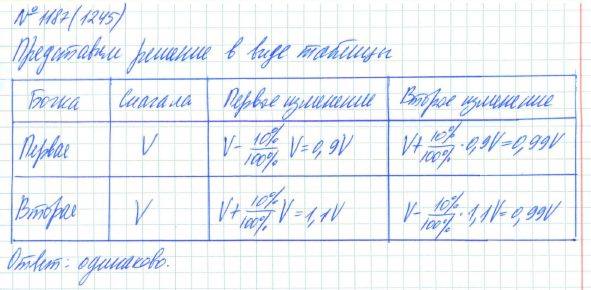 № 1187 (1245)
Представим решение в виде таблицы
Бочка Сначала Первое изменение Второе изменение
Первая V V - 10%/100% V = 0,9V V + 10%/100% · 0,9V = 0,99V
Вторая V V + 10%/100% V = 1,1V V - 10%/100% · 1,1V = 0,99V
Ответ: одинаково.